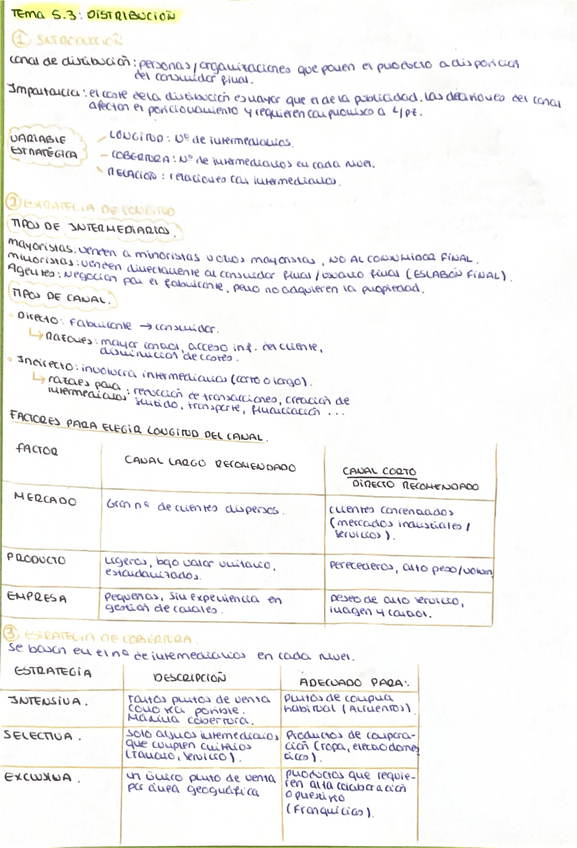 TEMA 5.3: DISTRIBUCIÓN
① INTRODUCCIÓN
Canal de distribución: personas/organizaciones que ponen el producto a disposición
del consumidor final.
Importancia: el coste de la distribución es mayor que el de la publicidad. Las decisiones del canal
afectan el posicionamiento y requieren compromiso a L/pt.
VARIABLE
ESTRATÉGICA
LONGITUD: Nº de intermediarios.
COBERTURA: Nº de intermediarios en cada nivel.
RELACIÓN: relaciones con intermediarios.
② ESTRATEGIA DE LONGITUD
TIPOS DE INTERMEDIARIOS.
Mayoristas: venden a minoristas u otros mayoristas, NO AL CONSUMIDOR FINAL.
Minoristas: venden directamente al consumidor final/usuario final (ESLABÓN FINAL).
Agentes: Negocian por el fabricante, pero no adquieren la propiedad.
TIPOS DE CANAL.
Directo: Fabricante → consumidor.
↳ Razones: mayor control, acceso inf. del cliente,
disminución de costes.
Indirecto: involucra intermediarios (corto o largo).
↳ razones para : reducción de transacciones, creación de
intermediarios surtido, transporte, financiación ...
FACTORES PARA ELEGIR LONGITUD DEL CANAL.
FACTOR CANAL LARGO RECOMENDADO CANAL CORTO
DIRECTO RECOMENDADO
MERCADO Gran nº de clientes dispersos. Clientes concentrados
(mercados industriales/
servicios).
PRODUCTO Ligeros, bajo valor unitario, Perecederos, alto peso/volum
estandarizados.
EMPRESA Pequeñas, sin experiencia en Deseo de alto servicio,
gestión de canales. imagen y control.
③ ESTRATEGIA DE COBERTURA.
Se basan en el nº de intermediarios en cada nivel.
ESTRATEGIA DESCRIPCIÓN ADECUADO PARA:
INTENSIVA. Tantos puntos de venta Puntos de compra
como sea posible. habitual (Alimentos).
Máxima cobertura.
SELECTIVA. Solo algunos intermediarios Productos de compara-
que cumplen criterios ción (ropa, electrodomés
(tamaño, servicio). ticos).
EXCLUSIVA. Un único punto de venta productos que requie-
por área geográfica ren alta colaboración
o prestigio
(Franquicias).